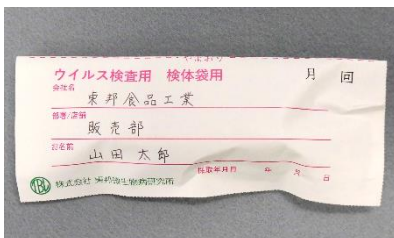 やまおり
ウイルス検査用 検体袋用 月 回
会社名
東邦食品工業
部署/店舗
販売部
お名前
山田太郎
採取年月日 年 月 日
株式会社 東邦微生物病研究所